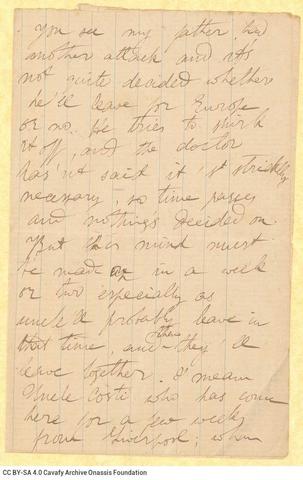 You see my father had
another attack and it's
not quite decided whether
he'll leave for Europe
or no. He tries to shirk
it off, and the doctor
has'nt said it 's strickly
necessary; so time passes
and nothing's decided on.
But his mind must
be made up in a week
or two especially as
uncle'll probably leave in
that time, and then they'll
leave together. I mean
Uncle Costi who has come
here for a few weeks
from Liverpool; whom
CC BY-SA 4.0 Cavafy Archive Onassis Foundation